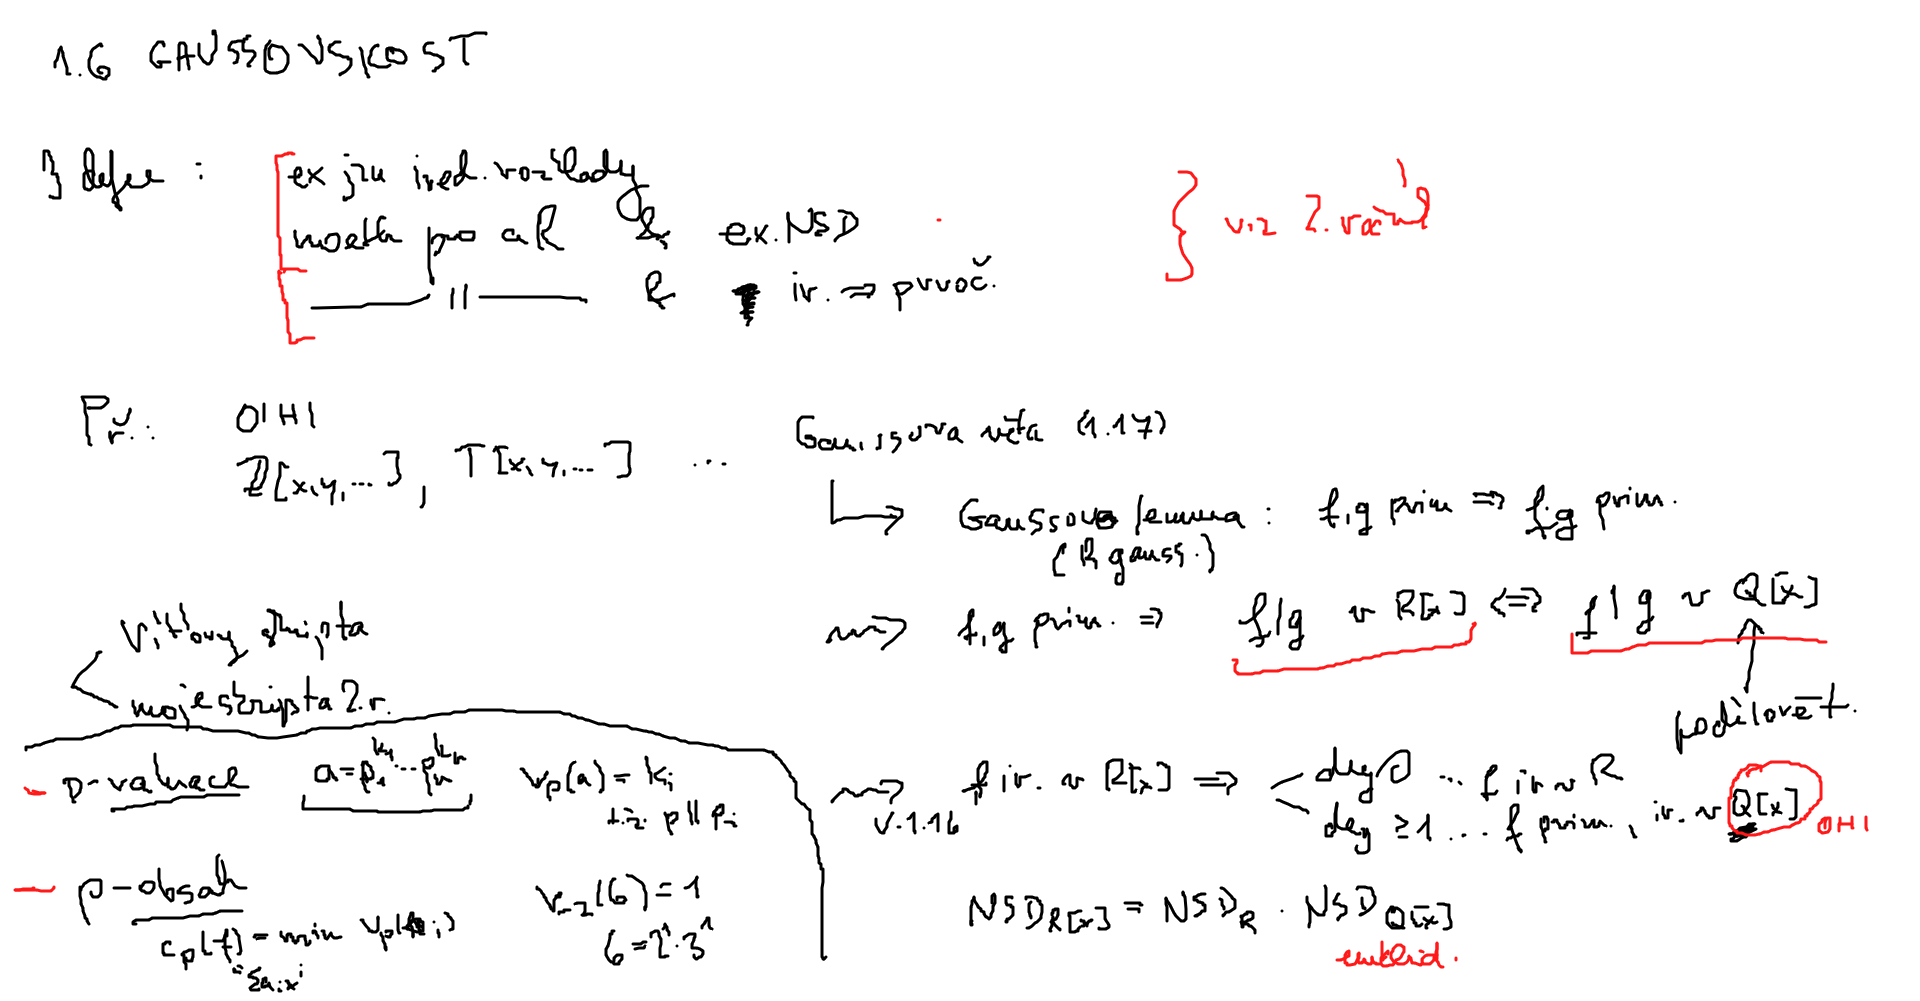 1.6 GAUSSOVSKOST
3 defce :
ex jzn ired. rozklady
neex ∞ řet. vl. děl. & ex. NSD
—— || —— & ir. ⇒ prvoč.
} viz 2. ročník
Př.: OIHI
Z[x,y,...], T[x,y,...] ...
Gaussova věta (1.17)
↳ Gaussovo lemma : f,g prim ⇒ f·g prim.
(R gauss.)
⇝ f,g prim. ⇒ f|g v R[x] ⇔ f|g v Q[x]
podílové t.
Vítovy skripta
moje skripta 2.r.
- p-valuace a=p₁^k₁...pₙ^kₙ vₚ(a) = kᵢ
t.ž. p || pᵢ
- p-obsah v₌₂(6) = 1
cₚ(f) = min vₚ(aᵢ) 6 = 2¹·3¹
= Σaᵢxⁱ
⇝ V.1.16 f ir. v R[x] ⇒ deg 0 ... f ir v R
deg ≥1 ... f prim., ir. v Q[x] OHI
NSD_R[x] = NSD_R · NSD_Q[x]
euklid.